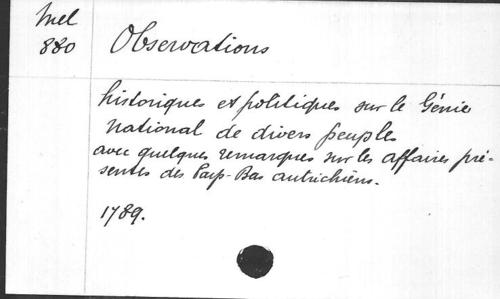 Mel
880
Observations
historiques et politiques sur le Génie
national de divers peuples
avec quelques remarques sur les affaires pré-
sentes des Pays-Bas autrichiens.
1789.